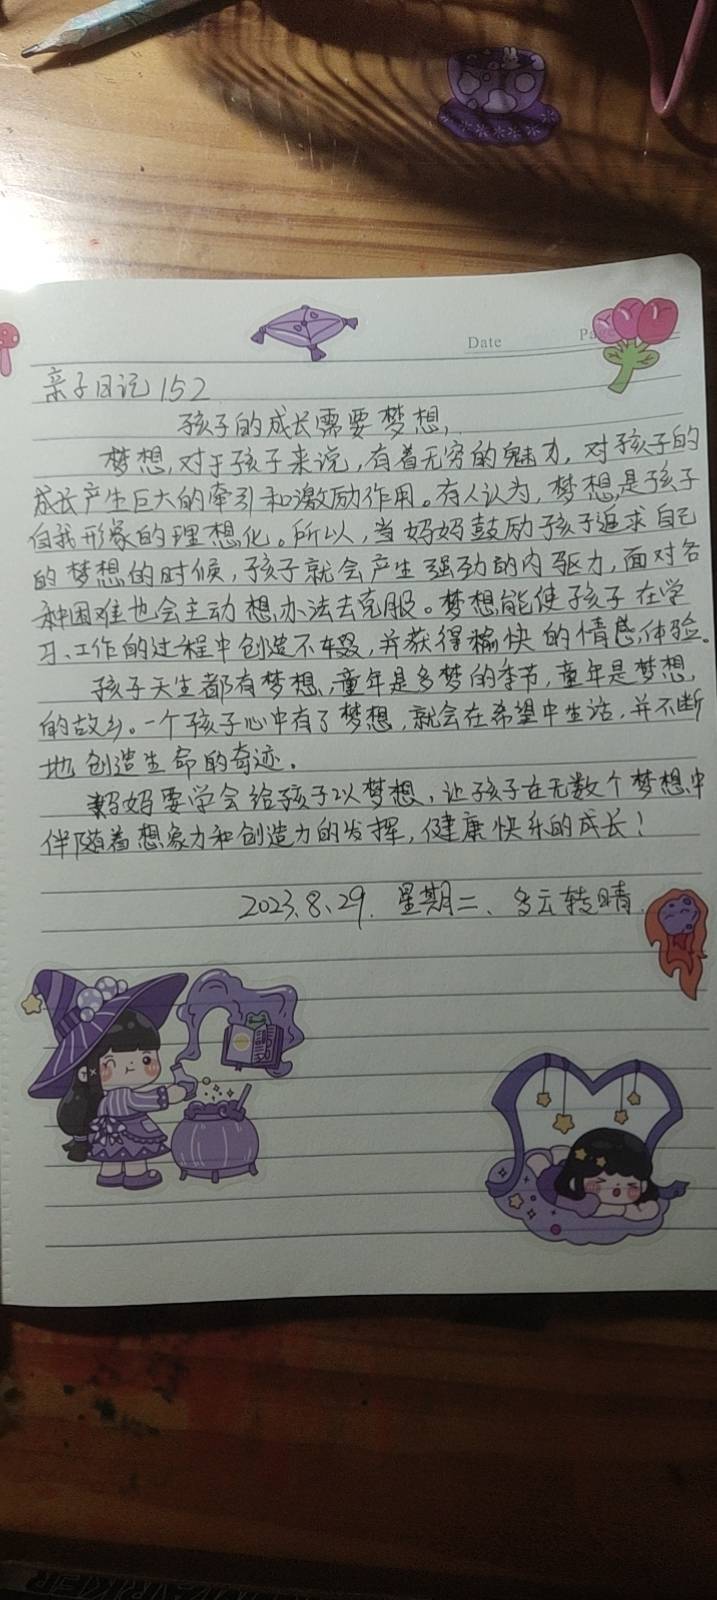 Date
Page
亲子日记152
孩子的成长需要梦想,
梦想,对于孩子来说,有着无穷的魅力,对孩子的
成长产生巨大的牵引和激励作用。有人认为,梦想是孩子
自我形象的理想化。所以,当妈妈鼓励孩子追求自己
的梦想的时候,孩子就会产生强劲的内驱力,面对各
种困难也会主动想办法去克服。梦想能使孩子在学
习、工作的过程中创造不辍,并获得愉快的情感体验。
孩子天生都有梦想,童年是多梦的季节,童年是梦想
的故乡。一个孩子心中有了梦想,就会在希望中生活,并不断
地创造生命的奇迹.
妈妈要学会给孩子以梦想,让孩子在无数个梦想中
伴随着想象力和创造力的发挥,健康快乐的成长!
2023.8.29. 星期二、多云转晴.